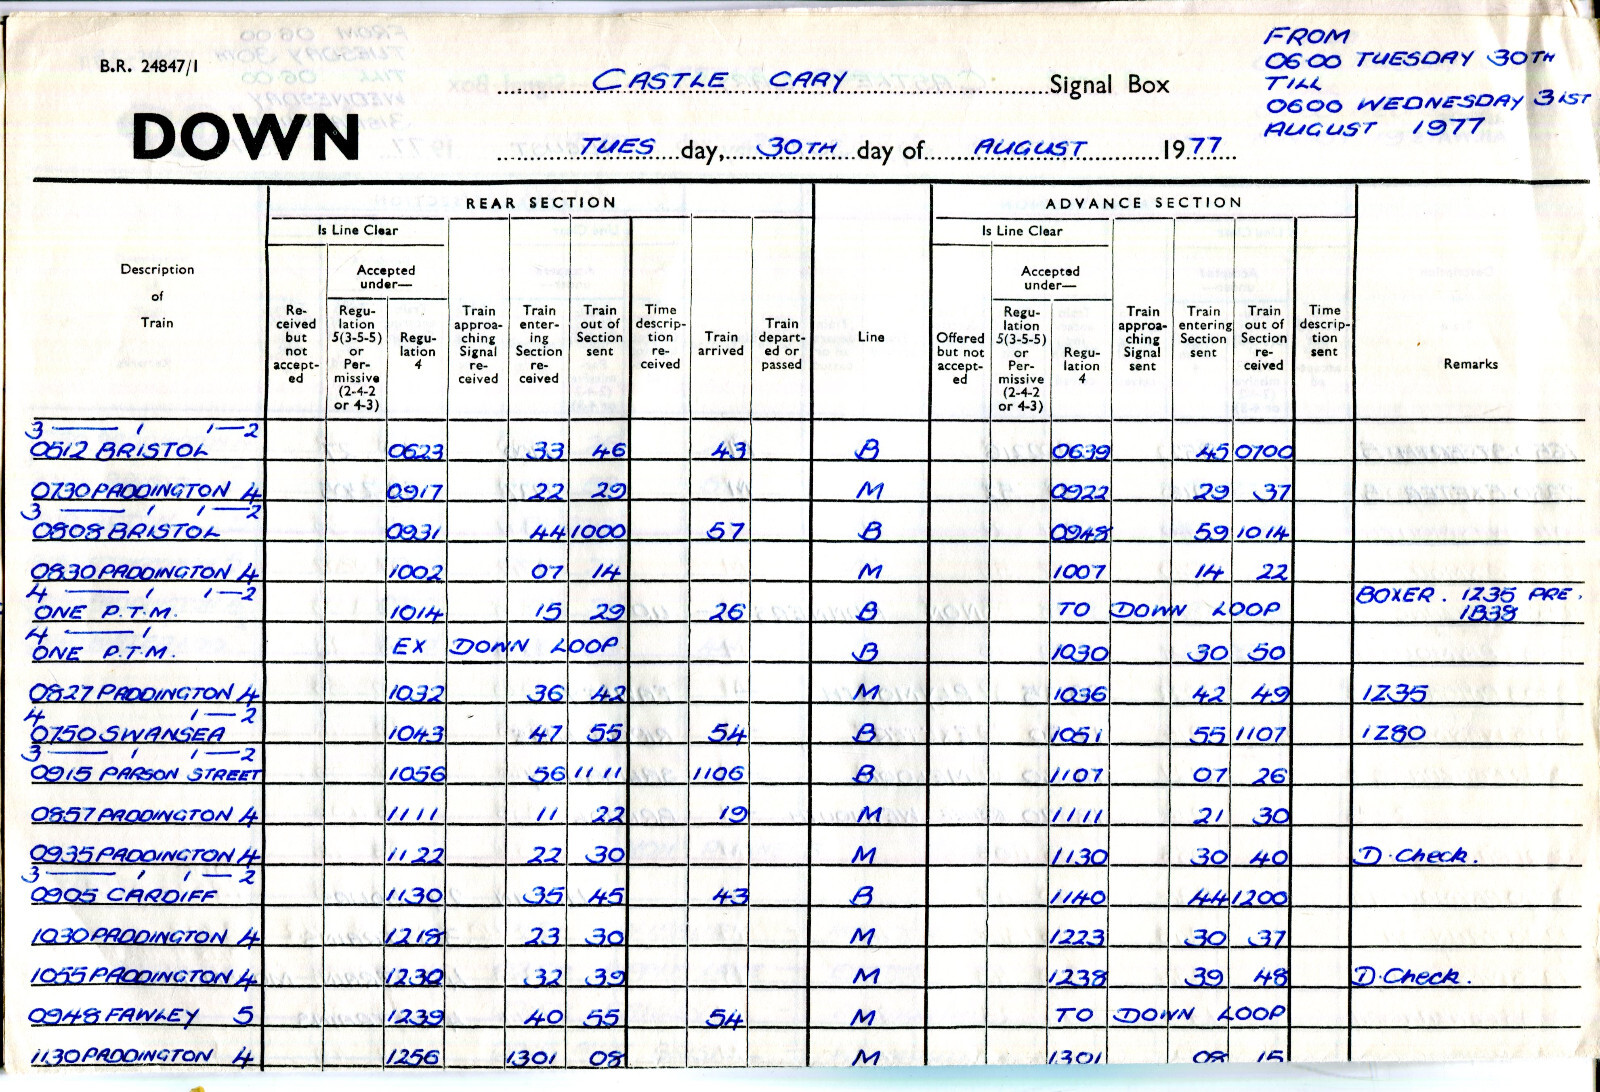 B.R. 24847/1
CASTLE CARY Signal Box
DOWN
TUES day, 30TH day of AUGUST 1977
FROM
0600 TUESDAY 30TH
TILL
0600 WEDNESDAY 31ST
AUGUST 1977
REAR SECTION
ADVANCE SECTION
Is Line Clear
Is Line Clear
Description
of
Train
Re-
ceived
but
not
accept-
ed
Accepted
under—
Regu-
lation
5(3-5-5)
or
Per-
missive
(2-4-2
or 4-3)
Regu-
lation
4
Train
approa-
ching
Signal
re-
ceived
Train
enter-
ing
Section
re-
ceived
Train
out of
Section
sent
Time
descrip-
tion
re-
ceived
Train
arrived
Train
depart-
ed or
passed
Line
Offered
but not
accept-
ed
Accepted
under—
Regu-
lation
5(3-5-5)
or
Per-
missive
(2-4-2
or 4-3)
Regu-
lation
4
Train
approa-
ching
Signal
sent
Train
entering
Section
sent
Train
out of
Section
re-
ceived
Time
descrip-
tion
sent
Remarks
3 — 1 1—2
0512 BRISTOL 0623 33 46 43 B 0639 45 0700
0730 PADDINGTON 4 0917 22 29 M 0922 29 37
3 — 1 1—2
0808 BRISTOL 0931 44 1000 57 B 0948 59 1014
0830 PADDINGTON 4 1002 07 14 M 1007 14 22
4 — 1 1—2
ONE P.T.M. 1014 15 29 26 B TO DOWN LOOP BOXER. 1235 PRE.
1B38
4 — 1
ONE P.T.M. EX DOWN LOOP B 1030 30 50
0827 PADDINGTON 4 1032 36 42 M 1036 42 49 1Z35
4 1—2
0750 SWANSEA 1043 47 55 54 B 1051 55 1107 1Z80
3 — 1 1—2
0915 PARSON STREET 1056 56 1111 1106 B 1107 07 26
0857 PADDINGTON 4 1111 11 22 19 M 1111 21 30
0935 PADDINGTON 4 1122 22 30 M 1130 30 40 D. Check.
3 — 1 1—2
0905 CARDIFF 1130 35 45 43 B 1140 44 1200
1030 PADDINGTON 4 1218 23 30 M 1223 30 37
1055 PADDINGTON 4 1230 32 39 M 1238 39 48 D. Check.
0948 FAWLEY 5 1239 40 55 54 M TO DOWN LOOP
1130 PADDINGTON 4 1256 1301 08 M 1301 08 15